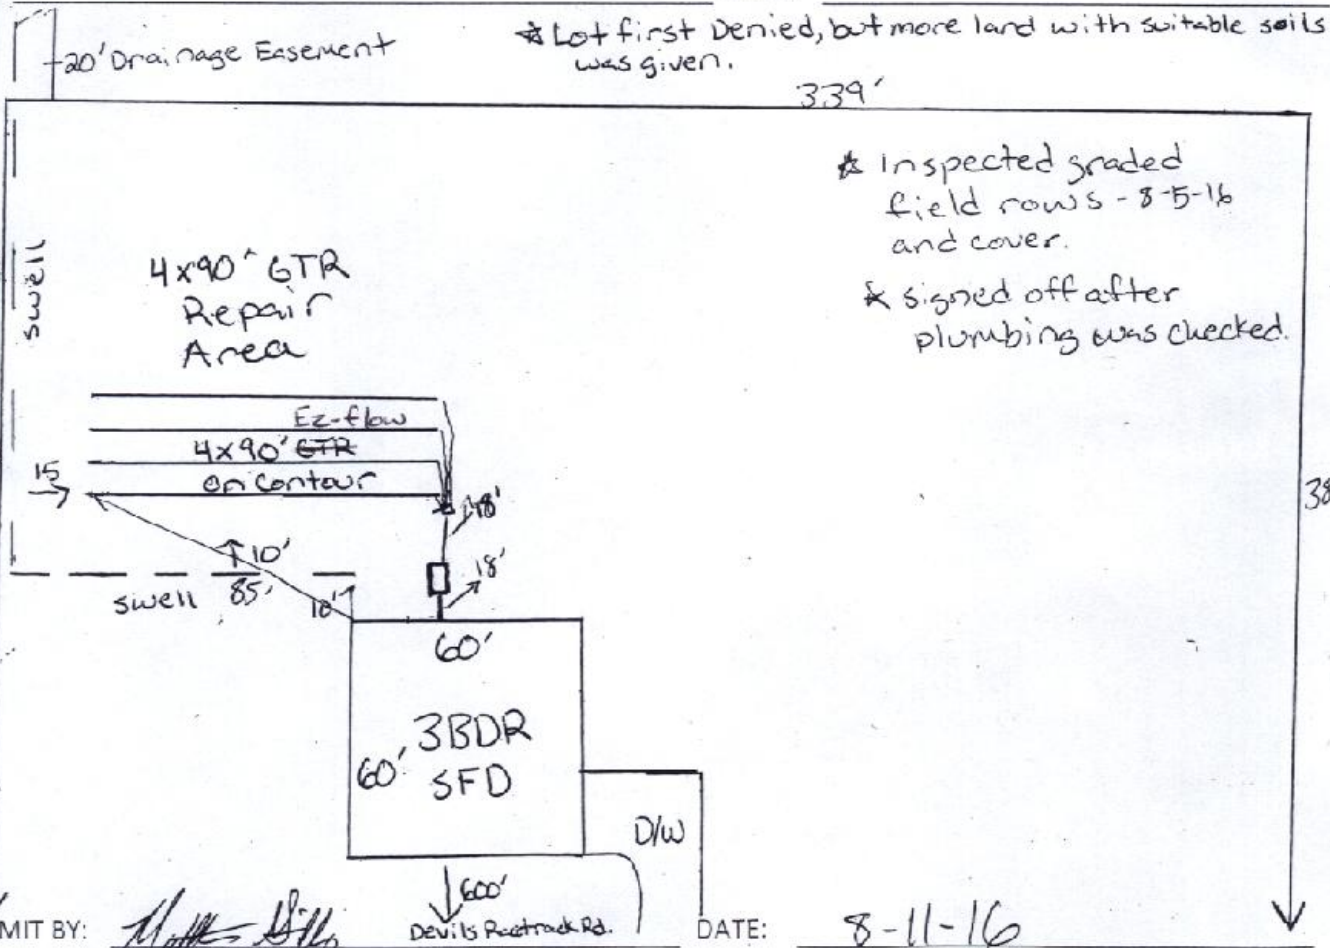 20' Drainage Easement
* Lot first Denied, but more land with suitable soils
was given.
339'
* Inspected graded
field rows - 8-5-16
and cover.
* signed off after
plumbing was checked.
swell
4x90' GTR
Repair
Area
Ez-flow
4x90' GTR
on contour
15
18'
38
10'
18'
swell 85'
10'
60'
3BDR
60' SFD
D/W
600'
Devils Racetrack Rd.
MIT BY:
DATE: 8-11-16